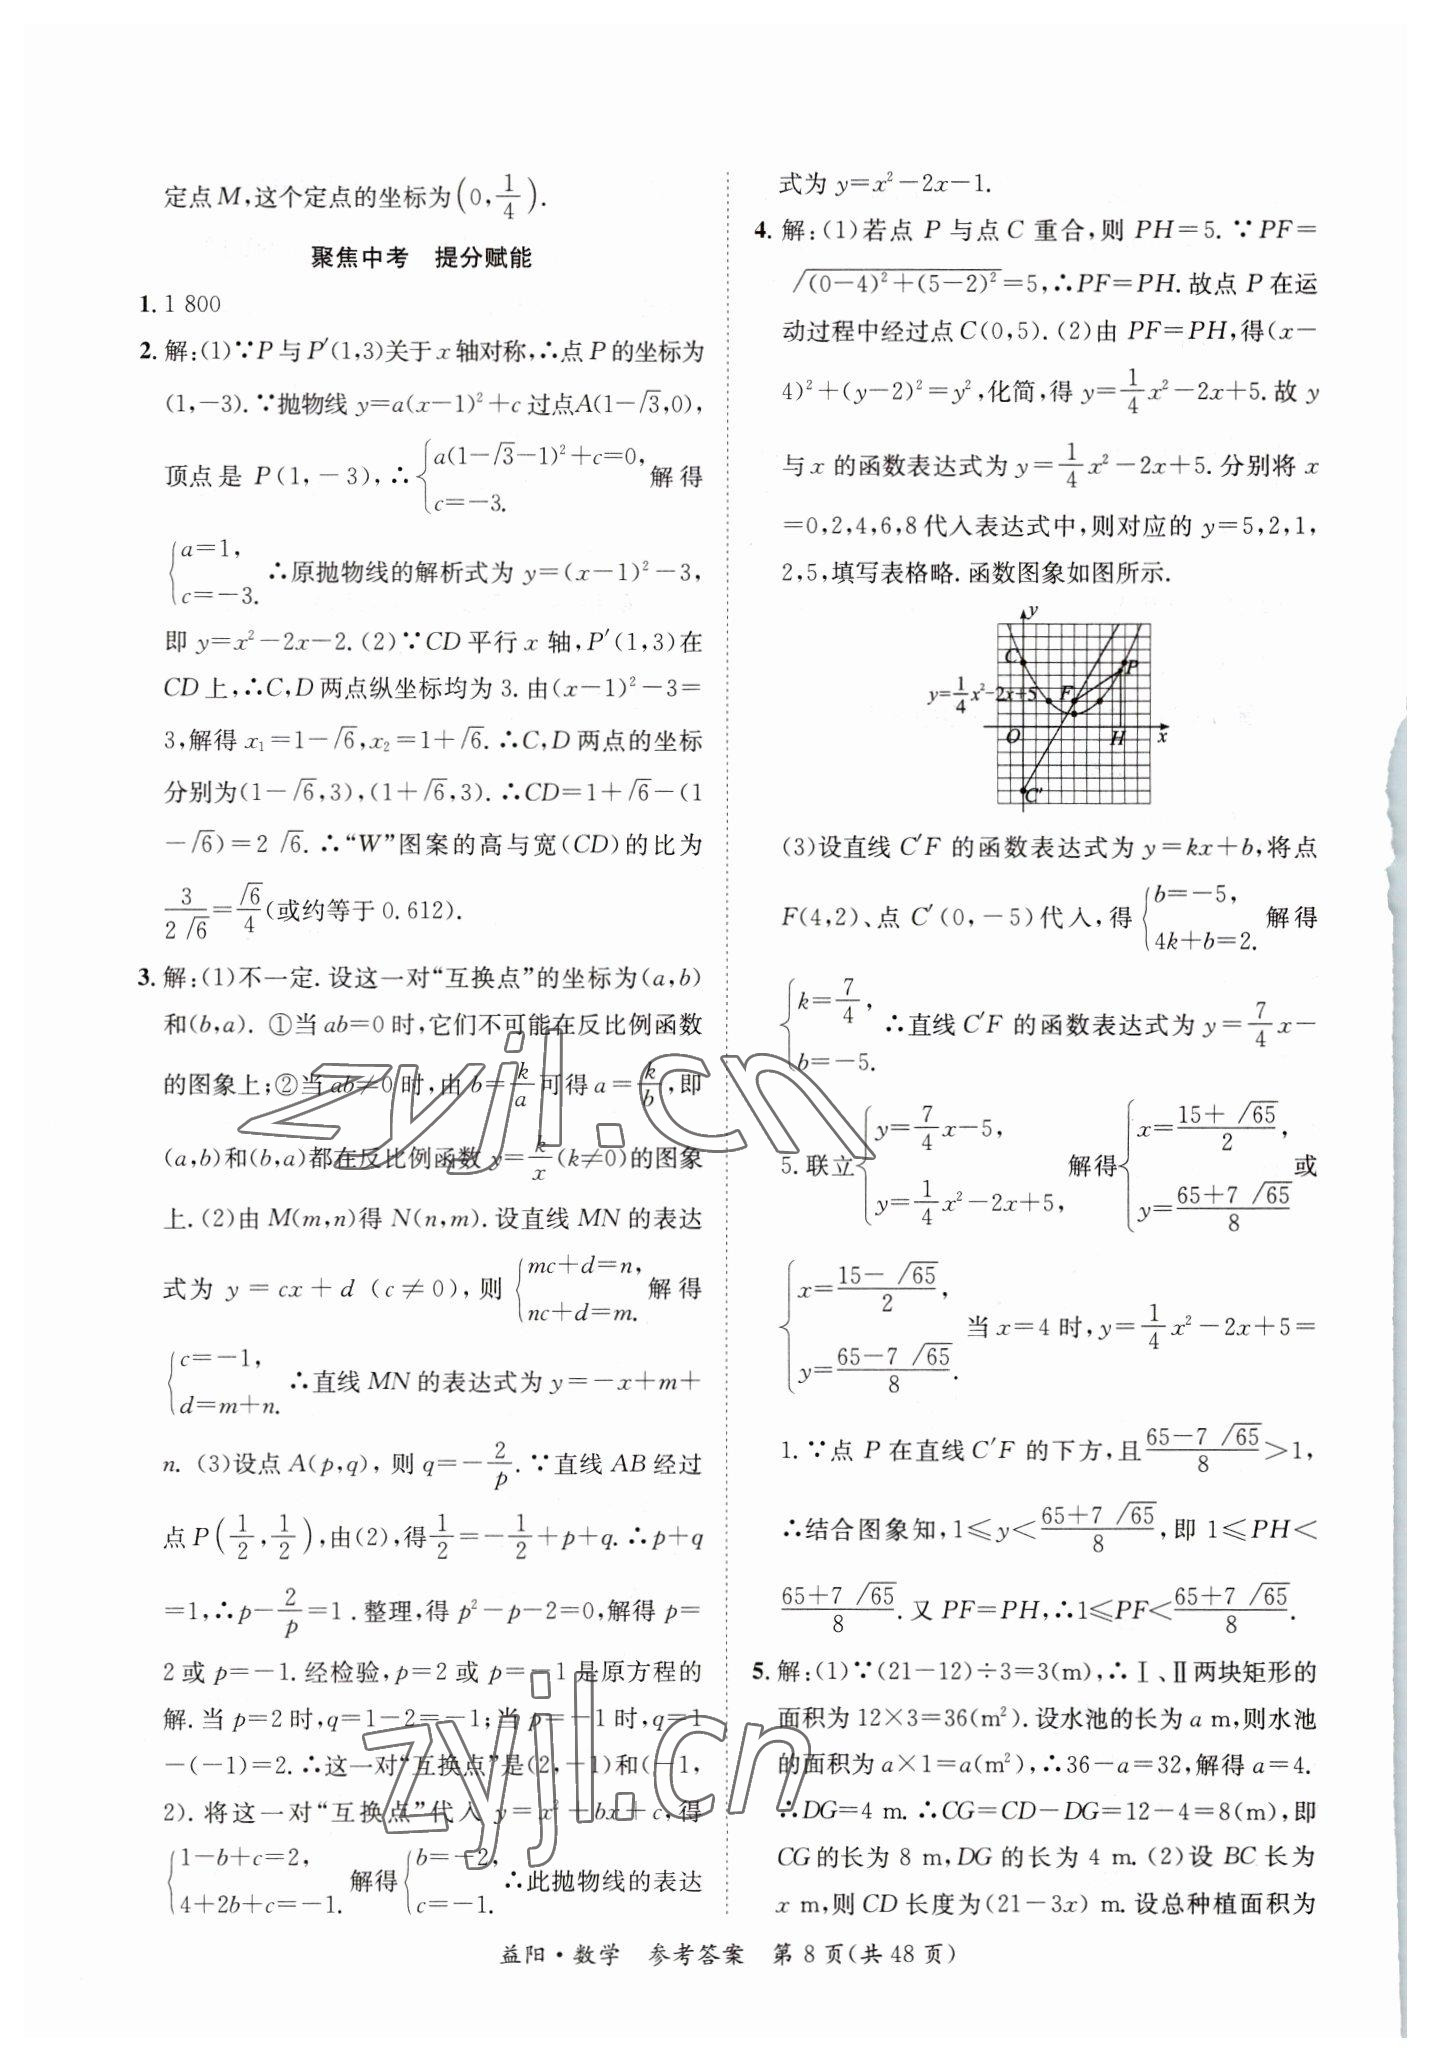 定点M,这个定点的坐标为(0,1/4).
聚焦中考 提分赋能
1.1 800
2.解:(1)∵P与P′(1,3)关于x轴对称,∴点P的坐标为
(1,-3).∵抛物线y=a(x-1)²+c过点A(1-√3,0),
顶点是P(1,-3),∴{a(1-√3-1)²+c=0, c=-3. 解得
{a=1, c=-3. ∴原抛物线的解析式为y=(x-1)²-3,
即y=x²-2x-2.(2)∵CD平行x轴,P′(1,3)在
CD上,∴C,D两点纵坐标均为3.由(x-1)²-3=
3,解得x₁=1-√6,x₂=1+√6.∴C,D两点的坐标
分别为(1-√6,3),(1+√6,3).∴CD=1+√6-(1
-√6)=2√6.∴“W”图案的高与宽(CD)的比为
3/(2√6)=√6/4(或约等于0.612).
3.解:(1)不一定.设这一对“互换点”的坐标为(a,b)
和(b,a).①当ab=0时,它们不可能在反比例函数
的图象上;②当ab≠0时,由b=k/a可得a=k/b,即
(a,b)和(b,a)都在反比例函数y=k/x(k≠0)的图象
上.(2)由M(m,n)得N(n,m).设直线MN的表达
式为y=cx+d(c≠0),则{mc+d=n, nc+d=m. 解得
{c=-1, d=m+n. ∴直线MN的表达式为y=-x+m+
n.(3)设点A(p,q),则q=-2/p.∵直线AB经过
点P(1/2,1/2),由(2),得1/2=-1/2+p+q.∴p+q
=1,∴p-2/p=1.整理,得p²-p-2=0,解得p=
2或p=-1.经检验,p=2或p=-1是原方程的
解.当p=2时,q=1-2=-1;当p=-1时,q=1
-(-1)=2.∴这一对“互换点”是(2,-1)和(-1,
2).将这一对“互换点”代入y=x²+bx+c,得
{1-b+c=2, 4+2b+c=-1. 解得{b=-2, c=-1. ∴此抛物线的表达
式为y=x²-2x-1.
4.解:(1)若点P与点C重合,则PH=5.∵PF=
√((0-4)²+(5-2)²)=5,∴PF=PH.故点P在运
动过程中经过点C(0,5).(2)由PF=PH,得(x-
4)²+(y-2)²=y²,化简,得y=1/4x²-2x+5.故y
与x的函数表达式为y=1/4x²-2x+5.分别将x
=0,2,4,6,8代入表达式中,则对应的y=5,2,1,
2,5,填写表格略.函数图象如图所示.
y
C
P
y=1/4x²-2x+5
F
O
H
x
C′
(3)设直线C′F的函数表达式为y=kx+b,将点
F(4,2)、点C′(0,-5)代入,得{b=-5, 4k+b=2. 解得
{k=7/4, b=-5. ∴直线C′F的函数表达式为y=7/4x-
5.联立{y=7/4x-5, y=1/4x²-2x+5, 解得{x=(15+√65)/2, y=(65+7√65)/8 或
{x=(15-√65)/2, y=(65-7√65)/8. 当x=4时,y=1/4x²-2x+5=
1.∵点P在直线C′F的下方,且(65-7√65)/8>1,
∴结合图象知,1≤y<(65+7√65)/8,即1≤PH<
(65+7√65)/8.又PF=PH,∴1≤PF<(65+7√65)/8.
5.解:(1)∵(21-12)÷3=3(m),∴Ⅰ、Ⅱ两块矩形的
面积为12×3=36(m²).设水池的长为a m,则水池
的面积为a×1=a(m²),∴36-a=32,解得a=4.
∴DG=4 m.∴CG=CD-DG=12-4=8(m),即
CG的长为8 m,DG的长为4 m.(2)设BC长为
x m,则CD长度为(21-3x) m.设总种植面积为
益阳·数学 参考答案 第8页(共48页)
zyjl.cn
zyjl.cn